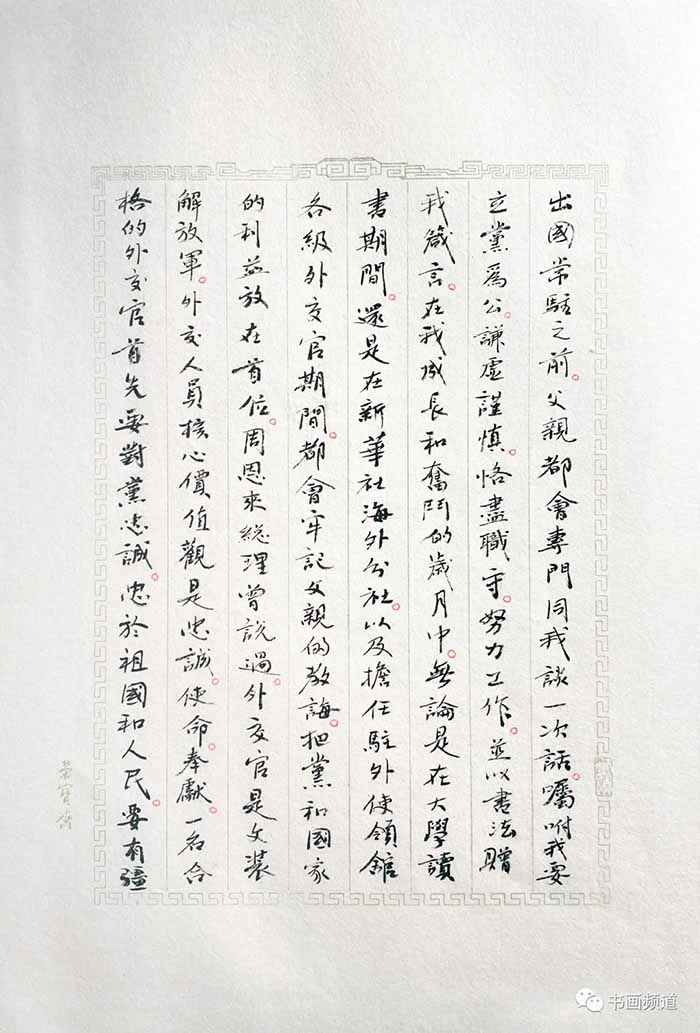 出國常駐之前。父親都會專門同我談一次話。囑咐我要
立黨爲公。謙虛謹慎。恪盡職守。努力工作。並以書法贈
我箴言。在我成長和奮鬥的歲月中。無論是在大學讀
書期間。還是在新華社海外分社。以及擔任駐外使領館
各級外交官期間。都會牢記父親的教誨。把黨和國家
的利益放在首位。周恩來總理曾說過。外交官是文裝
解放軍。外交人員核心價值觀是忠誠。使命。奉獻。一名合
格的外交官首先要對黨忠誠。忠於祖國和人民。要有疆
榮寶齋
书画频道